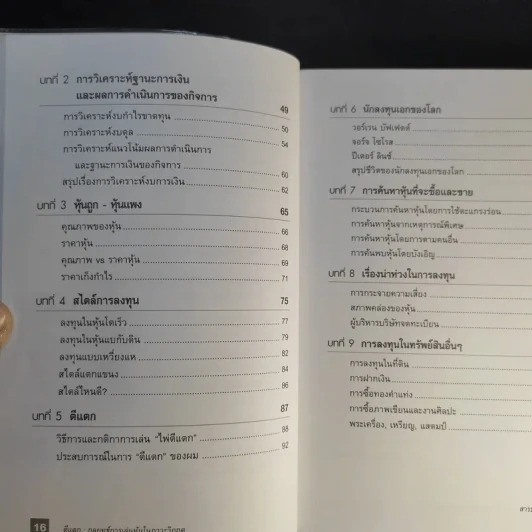 บทที่ 2 การวิเคราะห์ฐานะการเงิน
และผลการดำเนินการของกิจการ 49
การวิเคราะห์งบกำไรขาดทุน 50
การวิเคราะห์งบดุล 54
การวิเคราะห์แนวโน้มผลการดำเนินการ
และฐานะการเงินของกิจการ 60
สรุปเรื่องการวิเคราะห์งบการเงิน 62
บทที่ 3 หุ้นถูก - หุ้นแพง 65
คุณภาพของหุ้น 66
ราคาหุ้น 68
คุณภาพ vs ราคาหุ้น 69
ราคาเก็งกำไร 71
บทที่ 4 สไตล์การลงทุน 75
ลงทุนในหุ้นโตเร็ว 77
ลงทุนในหุ้นแบกับดิน 79
ลงทุนแบบเหวี่ยงแห 82
สไตล์แตกแขนง 84
สไตล์ไหนดี? 86
บทที่ 5 ตีแตก 87
วิธีการและกติกาการเล่น "ไพ่ตีแตก" 88
ประสบการณ์ในการ "ตีแตก" ของผม 92
16 ตีแตก : กลยุทธ์การเล่นหุ้นในภาวะวิกฤต
บทที่ 6 นักลงทุนเอกของโลก
วอร์เรน บัฟเฟตต์
จอร์จ โซโรส
ปีเตอร์ ลินช์
สรุปชีวิตของนักลงทุนเอกของโลก
บทที่ 7 การค้นหาหุ้นที่จะซื้อและขาย
กระบวนการค้นหาหุ้นโดยการใช้ตะแกรงร่อน
การค้นหาหุ้นจากเหตุการณ์พิเศษ
การค้นหาหุ้นโดยการตามคนอื่น
การค้นพบหุ้นโดยบังเอิญ
บทที่ 8 เรื่องน่าห่วงในการลงทุน
การกระจายความเสี่ยง
สภาพคล่องของหุ้น
ผู้บริหารบริษัทจดทะเบียน
บทที่ 9 การลงทุนในทรัพย์สินอื่นๆ
การลงทุนในที่ดิน
การฝากเงิน
การซื้อทองคำแท่ง
การซื้อภาพเขียนและงานศิลปะ
พระเครื่อง, เหรียญ, แสตมป์